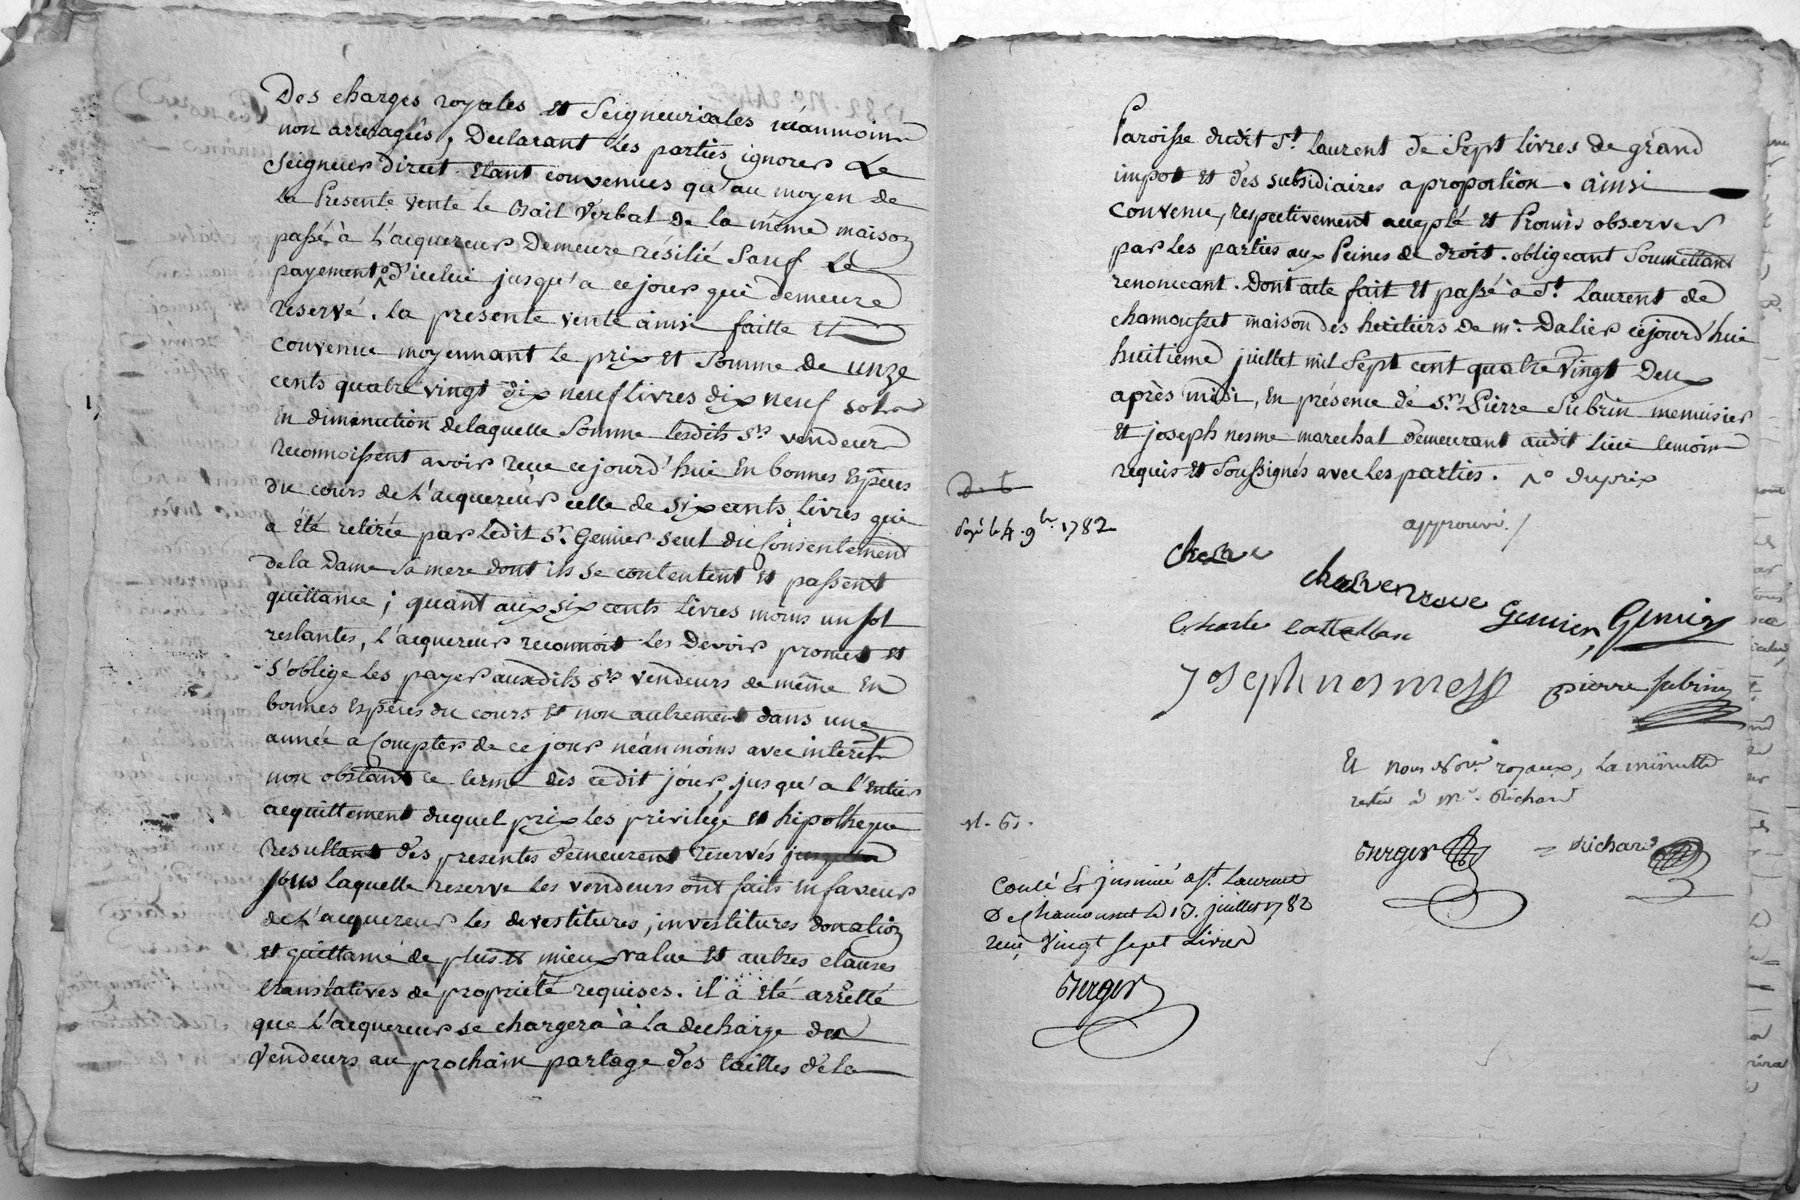 Des charges royales et Seigneuriales néanmoins
non arreragés, Declarant les parties ignorer Le
Seigneur direct. Etant convenues qu'au moyen de
la Presente vente le Bail verbal de la même maison
passé à L'acquereur Demeure résilié Sauf Le
payement d'icelui jusqu'a ce jour qui demeure
reservé. la presente vente ainsi faitte Et
convenue moyennant le prix et Somme de unze
cents quatre vingt dix neuf livres dix neuf sols
En diminution de laquelle Somme lesdits Srs vendeurs
reconnoissent avoir reçu cejourd'hui En bonnes Espèces
du cours de L'acquereur celle de six cents livres qui
a été retirée par ledit Sr. Genier seul du Consentement
de la Dame Sa mere dont ils se contentent et passent
quittance; quant aux six cents livres moins un sol
restantes, L'acquereur reconnoit les Devoir promet et
s'oblige les payer auxdits Srs vendeurs de même En
bonnes Espèces du cours et non autrement dans une
année a Compter de ce jour néanmoins avec interets
non obstant ce terme dès cedit jour, jusqu'a l'Entier
acquittement duquel prix les privilege et hipotheque
resultant des presentes demeurent reservés
sous laquelle reserve les vendeurs ont faits En faveur
de L'acquereur les devestitures, investitures donation
et quittance de plus et mieux value et autres clauses
translatives de proprieté requises. il a été arrêtté
que L'acquereur se chargera à la decharge des
Vendeurs au prochain partage des tailles de la
Paroisse dudit St. Laurent de Sept livres de grand
impot et des subsidiaires a proportion. ainsi
convenu, respectivement accepté et Promis observer
par les parties aux Peines de droit. obligeant Soumettant
renonceant. Dont acte fait Et passé à St. Laurent de
chamousset maison des heritiers de mr. Dalier cejourd'hui
huitieme juillet mil Sept cent quatre vingt Deux
après midi, En présence de Srs. Pierre Subrin menuisier
et joseph nesme marechal demeurant audit Lieu temoins
requis et Soussignés avec les parties. du prix
approuvé.
Genier, Genier
joseph nesme pierre subrin
Et nous Nores. royaux, La minutte
restée à Me. Richard
Berger Richard
payé le 4. 9bre. 1782
Conlé & insinué a St. Laurent
De Chamousset le 13. juillet 1782
reçu Vingt sept Livres
Berger